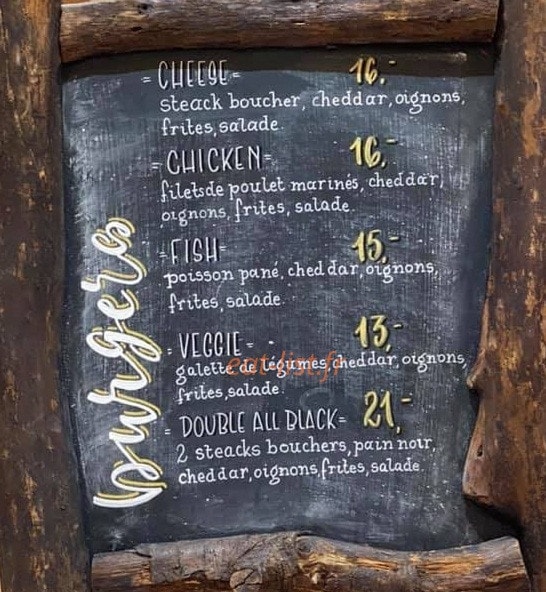 burgers
= CHEESE = 16.-
steack boucher, cheddar, oignons,
frites, salade.
= CHICKEN= 16.-
filets de poulet marinés, cheddar,
oignons, frites, salade.
=FISH= 15.-
poisson pané, cheddar, oignons,
frites, salade.
= VEGGIE = 13.-
galette de légumes, cheddar, oignons,
frites, salade.
= DOUBLE ALL BLACK= 21.-
2 steacks bouchers, pain noir,
cheddar, oignons, frites, salade.